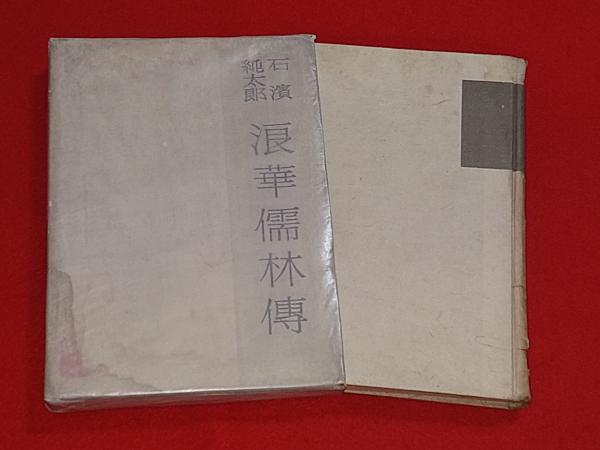 石濱
純太郎
浪華儒林傳